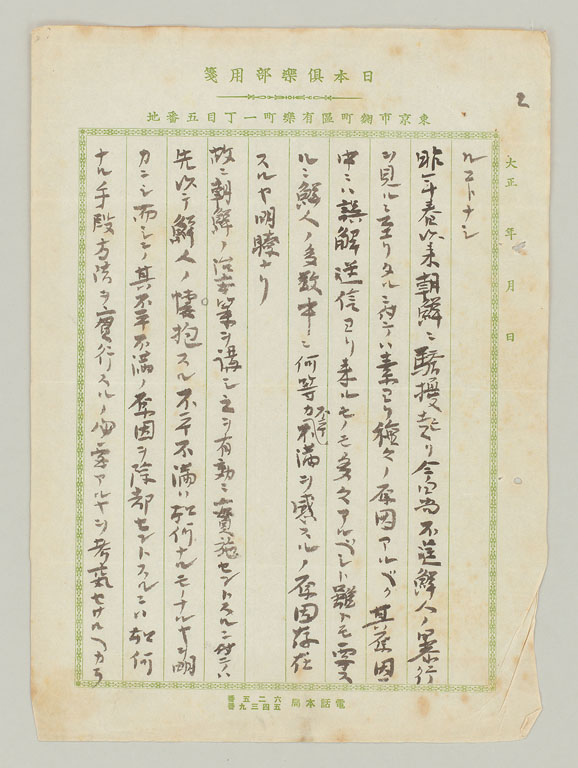 日本俱樂部用箋
東京市麴町區有樂町一丁目五番地
2
大正　年　月　日
ルコトナシ
昨年春以来朝鮮ニ騒擾起リ今尚不逞鮮人ノ暴行
ヲ見ルニ至リタルニ付テハ素ヨリ種々ノ原因アルベク其蕉因
中ニハ誤解迷信ヨリ来ルモノモ多々アルベシト雖トモ要ス
ルニ鮮人ノ多数中ニ何等カ不平不満ヲ感スルノ原因存在
スルヤ明瞭ナリ
故ニ朝鮮ノ治安策ヲ講シ之ヲ有効ニ實施セントスルニ付テハ
先以テ鮮人ノ懐抱スル不平不満ハ如何ナルモノナルヤヲ明
カニシ而シテ其不平不満ノ原因ヲ除却セントスルニハ如何
ナル手段方法ヲ實行スルノ必要アルヤヲ考究セサルヘカラ
電話本局
六二五番
五四三九番